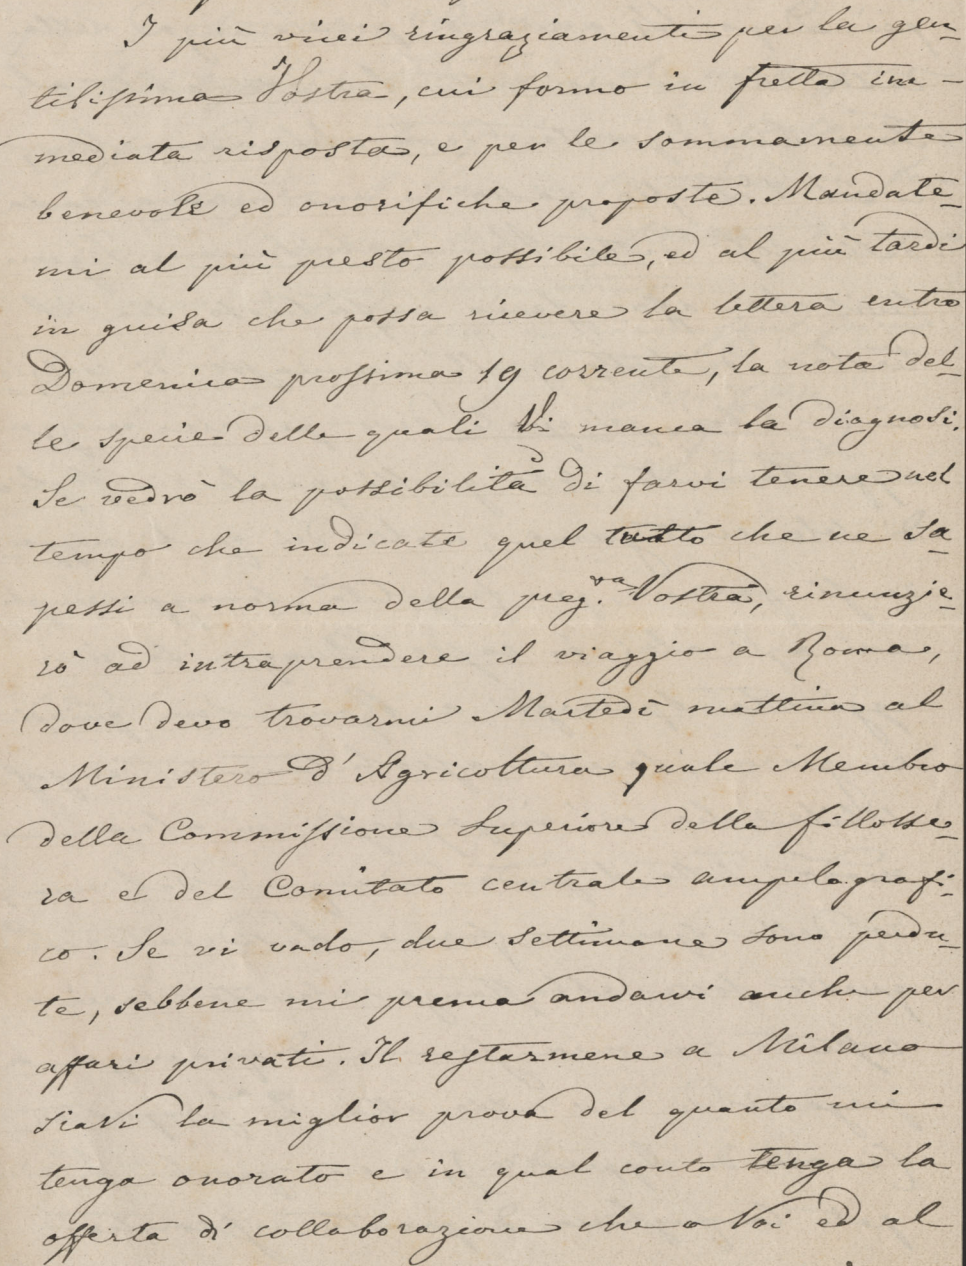 I più vivi ringraziamenti per la gen-
tilissima Vostra, cui formo in fretta im-
mediata risposta, e per le sommamente
benevole ed onorifiche proposte. Mandate-
mi al più presto possibile, ed al più tardi
in guisa che possa ricevere la lettera entro
Domenica prossima 19 corrente, la nota del-
le specie delle quali Vi manca la diagnosi.
Se vedrò la possibilità di farvi tenere nel
tempo che indicate quel tutto che ne sa-
pessi a norma della preg.va Vostra, rinunzie-
rò ad intraprendere il viaggio a Roma,
dove devo trovarmi Martedì mattina al
Ministero d'Agricoltura quale Membro
della Commissione Superiore della fillosse-
ra e del Comitato centrale ampelografi-
co. Se vi vado, due settimane sono perdu-
te, sebbene mi prema andarvi anche per
affari privati. Il restarmene a Milano
siavi la miglior prova del quanto mi
tenga onorato e in qual conto tenga la
offerta di collaborazione che a Voi ed al